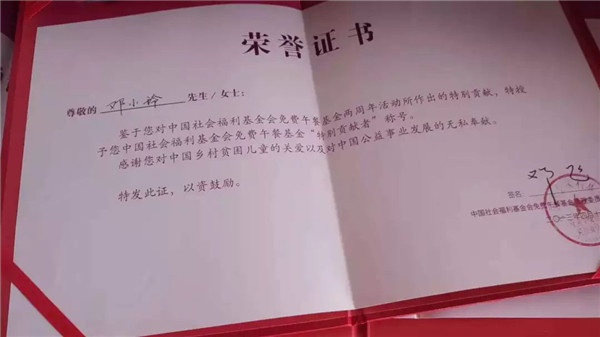 荣誉证书
尊敬的 邓小铃 先生/女士：
鉴于您对中国社会福利基金会免费午餐基金两周年活动所作出的特别贡献，特授
予您中国社会福利基金会免费午餐基金“特别贡献者”称号。
感谢您对中国乡村贫困儿童的关爱以及对中国公益事业发展的无私奉献。
特发此证，以资鼓励。
签名
中国社会福利基金会免费午餐基金
二〇一三年